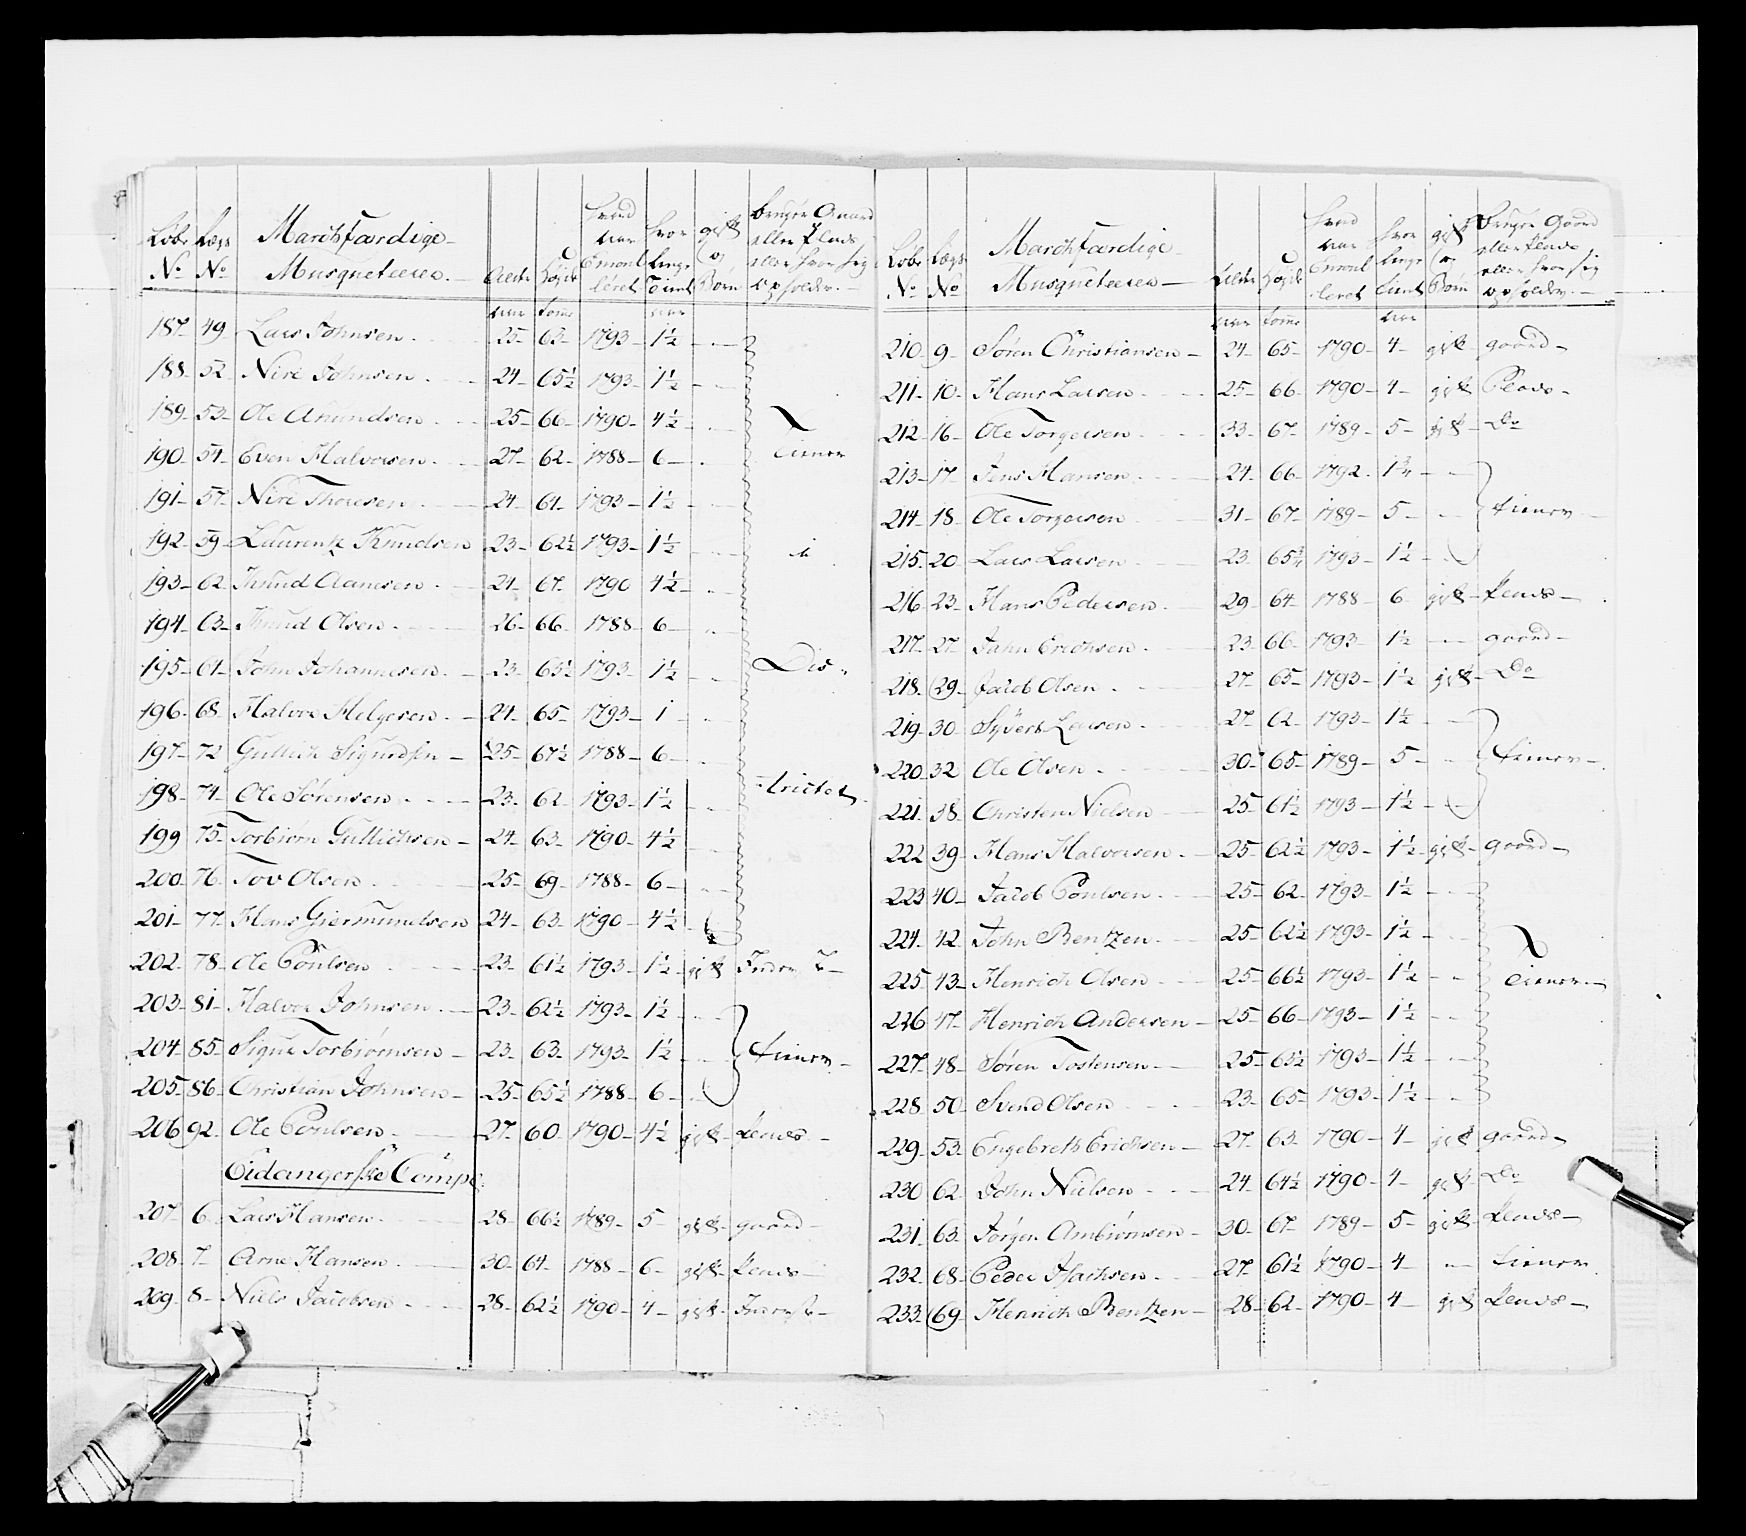 Løbe Lægs Marchfærdige
No No Musqueteerer. Alder Høyde hvad aar Enroulleret hvor lenge Tient gift og Børn bruger Gaard eller Plads eller hvor sig opholder.
aar tome aar
187 49 Lars Johnsen 25 62 1793 1½
188 52 Niri Johnsen 24 65½ 1793 1½
189 53 Ole Amundsen 25 66 1790 4½
190 54 Even Halvorsen 27 62 1788 6 Tiener
191 57 Niri Thoresen 24 64 1793 1½
192 59 Laurentz Knudsen 23 62½ 1793 1½ i
193 62 Knud Aanesen 24 67 1790 4½
194 63 Knud Olsen 26 66 1788 6
195 64 John Johannesen 23 65½ 1793 1½ Dis-
196 68 Halvor Helgesen 24 65 1793 1
197 72 Gullich Sigurdsen 25 67½ 1788 6
198 74 Ole Sørensen 23 62 1793 1½ trictet
199 75 Torbiørn Gullichsen 24 63 1790 4½
200 76 Tov Olsen 25 69 1788 6
201 77 Hans Giermundsen 24 63 1790 4½
202 78 Ole Poulsen 23 61½ 1793 1½ gift
203 81 Halvor Johnsen 23 62½ 1793 1½
204 85 Sigur Torbiørnsen 23 63 1793 1½ tiener
205 86 Christian Johnsen 25 65½ 1788 6
206 92 Ole Poulsen 27 60 1790 4½ gift Plads
Eidangerske Comp:
207 6 Lars Hansen 28 66½ 1789 5 gift gaard
208 7 Arne Hansen 30 64 1788 6 gift Plads
209 8 Niels Jacobsen 28 62½ 1790 4 gift
Løbe Lægs Marchfærdige
No No Musqueteerer Alder Høyde hvad aar Enroulleret hvor lenge tient gift og Børn bruger Gaard eller Plads eller hvor sig opholder.
aar tome aar
210 9 Søren Christiansen 24 65 1790 4 gift gaard
211 10 Hans Larsen 25 66 1790 4 gift Plads
212 16 Ole Torgersen 33 67 1789 5 gift Do
213 17 Jens Hansen 24 66 1792 1¾
214 18 Ole Torgersen 31 67 1789 5 tiener
215 20 Lars Larsen 23 65¾ 1793 1½
216 23 Hans Pedersen 29 64 1788 6 gift Plads
217 27 Jahn Erichsen 23 66 1793 1½ gaard
218 29 Jacob Olsen 27 65 1793 1½ gift Do
219 30 Syvert Larsen 27 62 1793 1½
220 32 Ole Olsen 30 65 1789 5 tiener
221 38 Christen Nielsen 25 61½ 1793 1½
222 39 Hans Halvorsen 25 62½ 1793 1½ gift gaard
223 40 Jacob Poulsen 25 62 1793 1½
224 42 John Bentzen 25 62½ 1793 1½
225 43 Henrich Olsen 25 66½ 1793 1½ Tiener
226 47 Henrich Andersen 25 66 1793 1½
227 48 Søren Tostensen 25 63½ 1793 1½
228 50 Svend Olsen 23 65 1793 1½
229 53 Engebreth Erichsen 27 63 1790 4 gift gaard
230 62 John Nielsen 24 64½ 1790 4 gift Do
231 63 Jørgen Ambiørnsen 30 67 1789 5 gift Plads
232 68 Peder Isachsen 27 61½ 1790 4 tiener
233 69 Henrich Bentzen 28 62 1790 4 gift Plads